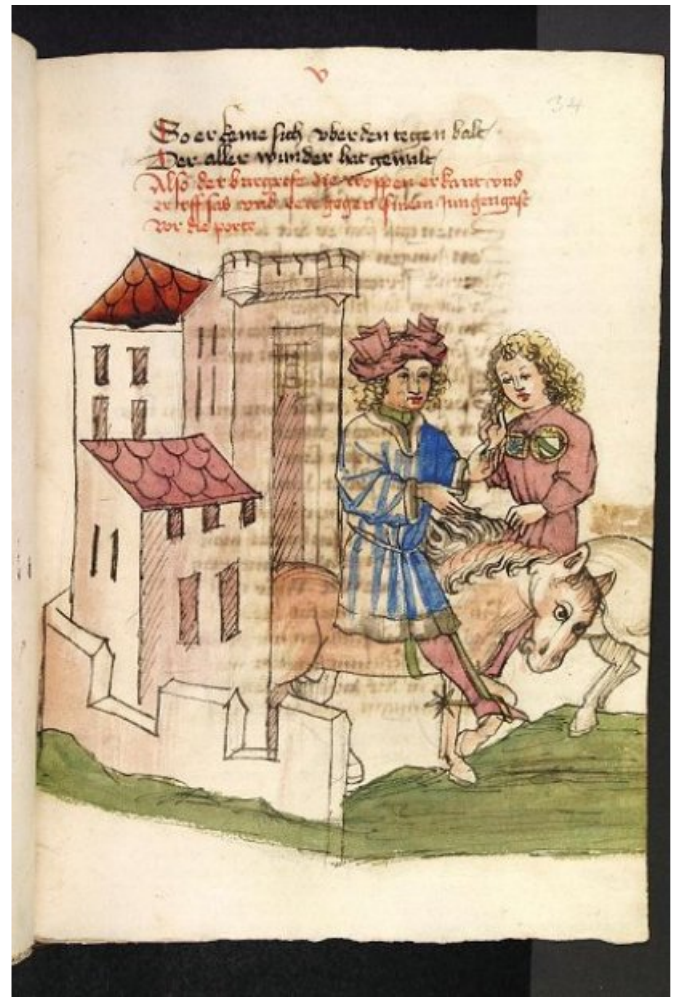 v
34
So er keme sich vber den tegen balt
Der aller wunder hat gewalt
Also der burgrofe die woppen erkant vnd
er vff sas vnd reit gegen sinen jungen gast
vor die porte